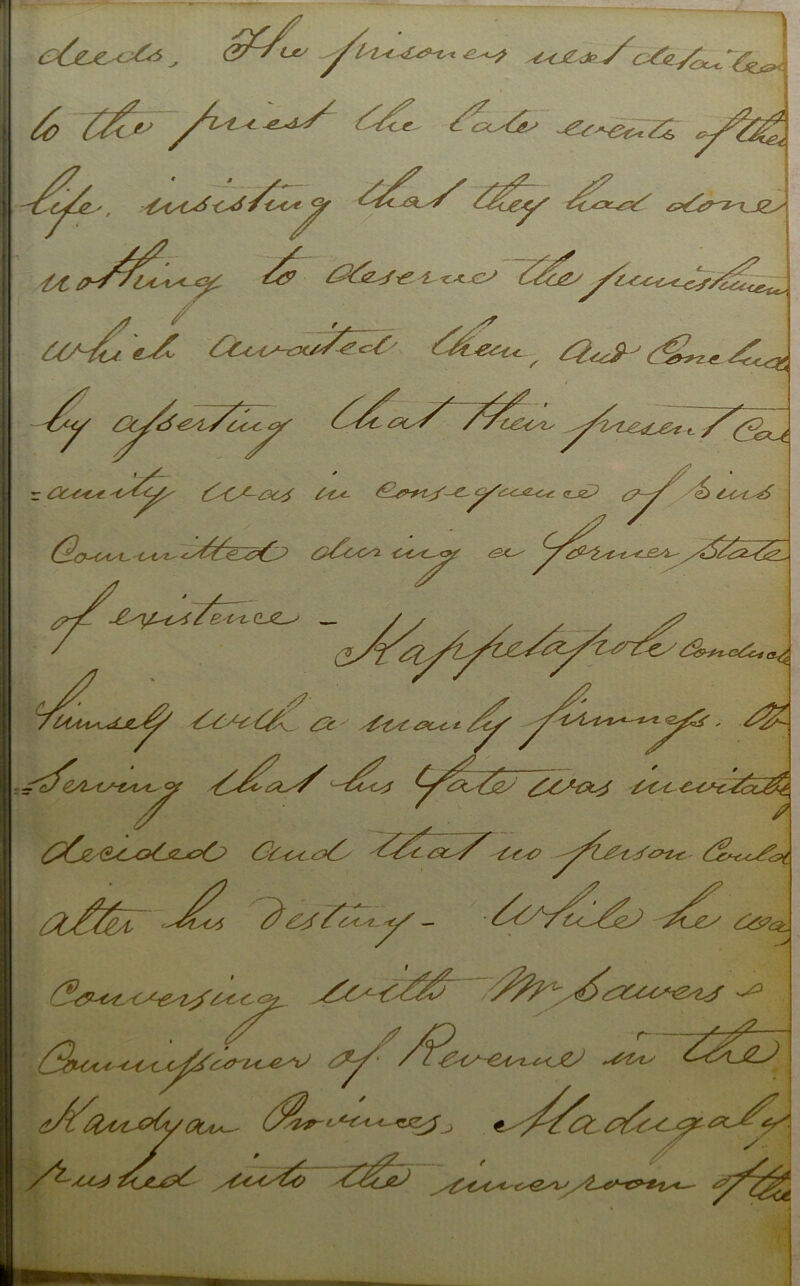 deeds, The prisoners next detailed
to the priest the late events of their
life, insisting that they had done
nothing to deserve the punishment
which awaited them, and Conclud
by asserting that their present Cal
= amity was in Consequence of Sins
Committed during a former State
of existence –
Kappetapole Conducted
himself with a manly firmness. Ob
= serving that his fate was inevitably
decided and that no person Could
alter his Destiny – While he was
Conversing with Mr Sawers –
Commissioner of Revenue in the
Kandyan Provinces, Madugaly
rushed into the inner room of the